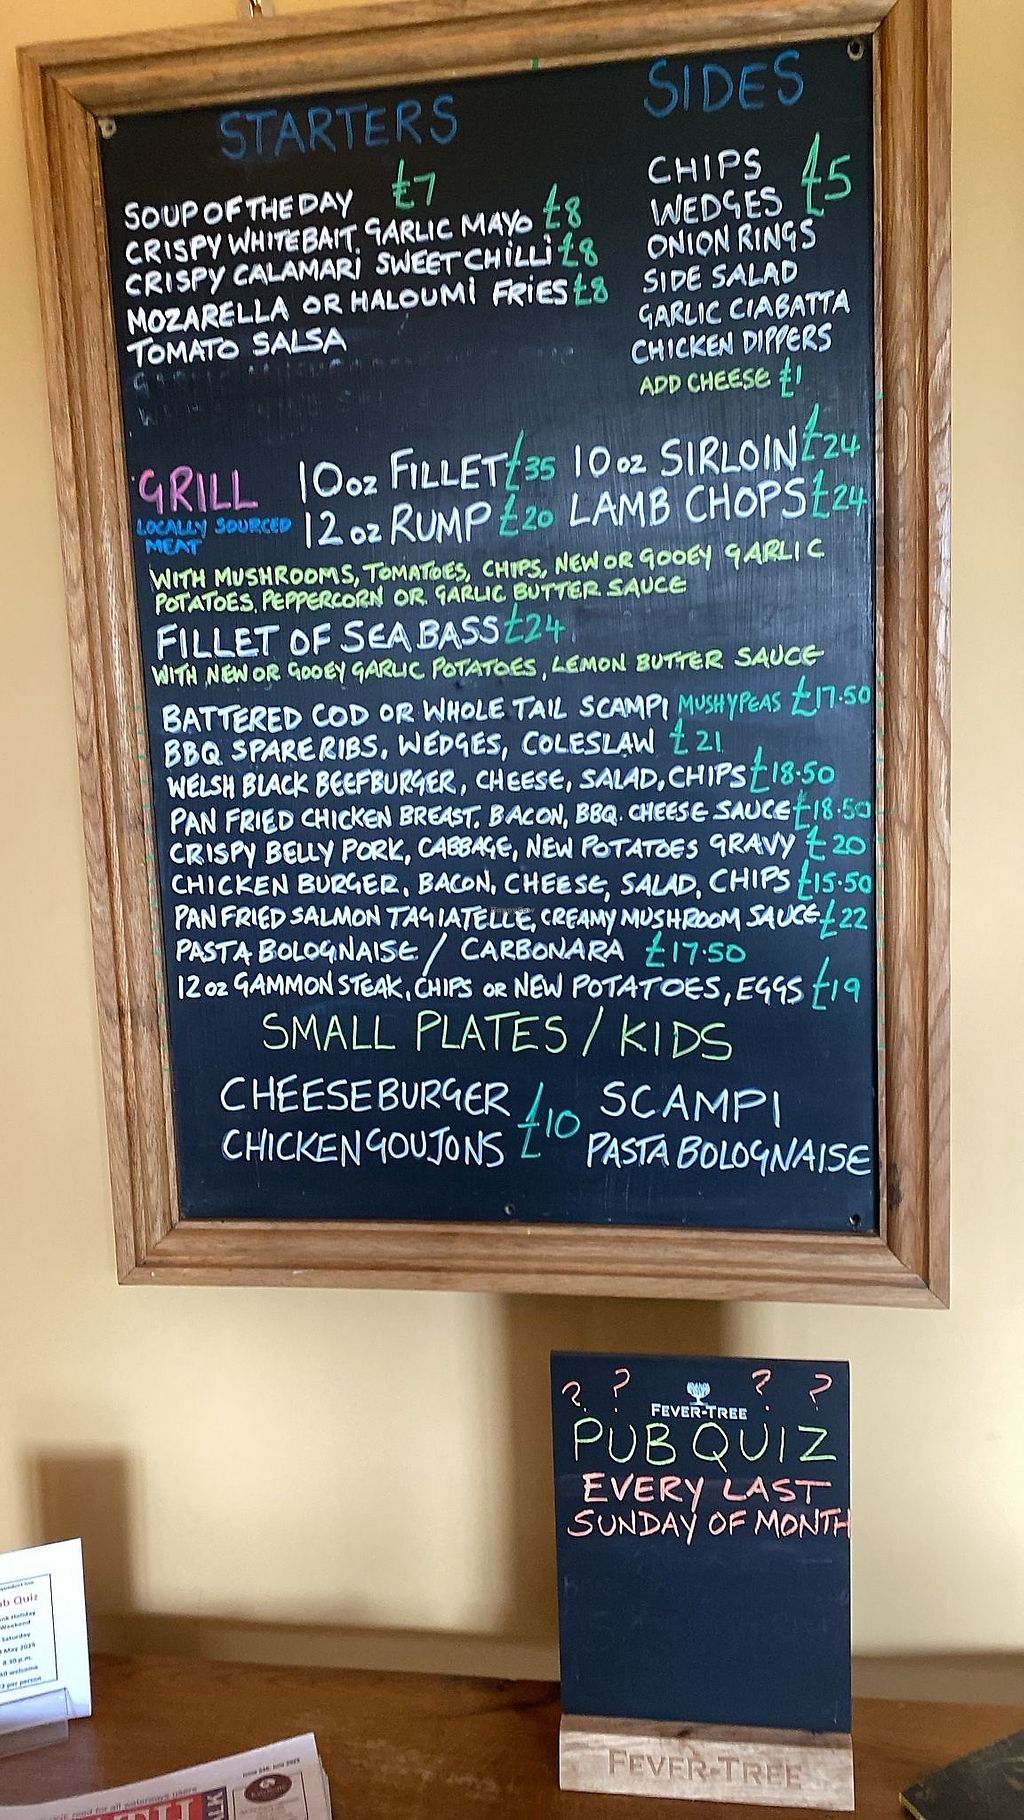 STARTERS
SOUP OF THE DAY £7
CRISPY WHITEBAIT, GARLIC MAYO £8
CRISPY CALAMARI SWEET CHILLI £8
MOZARELLA OR HALOUMI FRIES £8
TOMATO SALSA
SIDES
CHIPS £5
WEDGES
ONION RINGS
SIDE SALAD
GARLIC CIABATTA
CHICKEN DIPPERS
ADD CHEESE £1
GRILL 10oz FILLET £35 10oz SIRLOIN £24
LOCALLY SOURCED
MEAT
12oz RUMP £20 LAMB CHOPS £24
WITH MUSHROOMS, TOMATOES, CHIPS, NEW OR GOOEY GARLIC
POTATOES, PEPPERCORN OR GARLIC BUTTER SAUCE
FILLET OF SEA BASS £24
WITH NEW OR GOOEY GARLIC POTATOES, LEMON BUTTER SAUCE
BATTERED COD OR WHOLE TAIL SCAMPI MUSHY PEAS £17.50
BBQ SPARERIBS, WEDGES, COLESLAW £21
WELSH BLACK BEEFBURGER, CHEESE, SALAD, CHIPS £18.50
PAN FRIED CHICKEN BREAST, BACON, BBQ. CHEESE SAUCE £18.50
CRISPY BELLY PORK, CABBAGE, NEW POTATOES GRAVY £20
CHICKEN BURGER, BACON, CHEESE, SALAD, CHIPS £15.50
PAN FRIED SALMON TAGIATELLE, CREAMY MUSHROOM SAUCE £22
PASTA BOLOGNAISE / CARBONARA £17.50
12oz GAMMON STEAK, CHIPS OR NEW POTATOES, EGGS £19
SMALL PLATES / KIDS
CHEESEBURGER £10 SCAMPI
CHICKEN GOUJONS PASTA BOLOGNAISE
? ? ? ?
FEVER-TREE
PUB QUIZ
EVERY LAST
SUNDAY OF MONTH
FEVER-TREE
Quiz
Holiday
Weekend
Saturday
May 2025
8.30 p.m.
welcome
per person